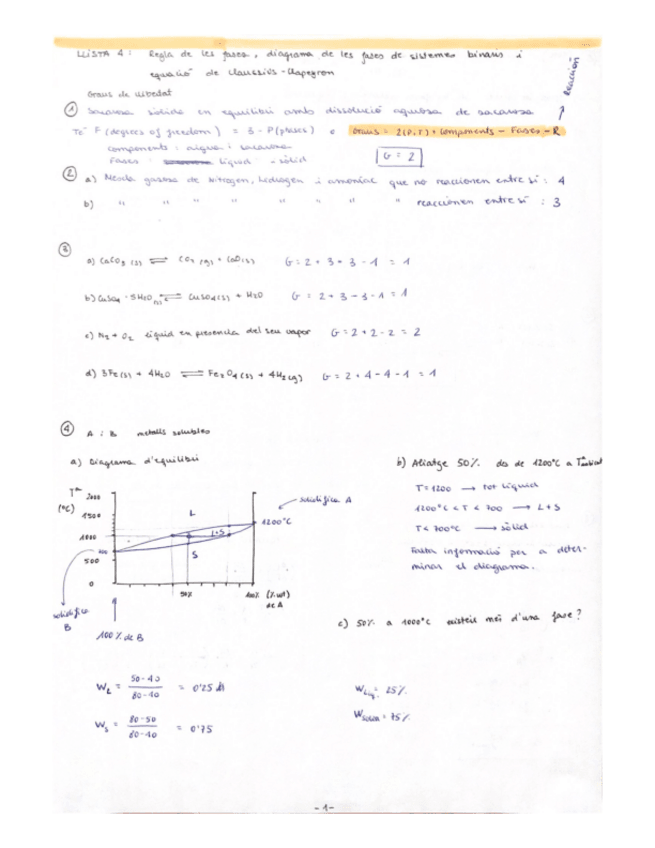 LLISTA 4: Regla de les fases, diagrama de les fases de sistemes binaris i
equació de Claussius-Clapeyron
Reacción
Graus de llibertat
① Sacarosa sòlida en equilibri amb dissolució aquosa de sacarosa
Tª F (degrees of freedom) = 3 - P(phases) o Graus = 2(P,T) + Components - Fases - R
components: aigua i sacarosa
Fases: líquid i sòlid
G = 2
② a) Mezcla gasosa de nitrogen, hidrogen i amoníac que no reaccionen entre sí: 4
b) " " " " " " " " reaccionen entre sí: 3
③
a) CaCO3 (s) ⇌ CO2 (g) + CaO(s) G = 2 + 3 + 3 - 1 = 1
b) CuSO4 · 5H2O (s) ⇌ CuSO4(s) + H2O G = 2 + 3 - 3 - 1 = 1
c) N2 + O2 líquid en presencia del seu vapor G = 2 + 2 - 2 = 2
d) 3Fe(s) + 4H2O ⇌ Fe3O4(s) + 4H2(g) G = 2 + 4 - 4 - 1 = 1
④ A i B metalls solubles
a) Diagrama d'equilibri
b) Aliatge 50% des de 1200°C a Tª ambient
T = 1200 → tot líquid
1200°C < T < 700 → L + S
T < 700°C → sòlid
Falta informació per a deter-
minar el diagrama.
Tª
(°C)
2000
1500
1000
500
0
L
L+S
S
solidifica A
1200°C
50%
100%
(%wt)
de A
solidifica
B
100% de B
c) 50% a 1000°C existeix més d'una fase?
WL = 50-40 / 80-40 = 0'25
WS = 80-50 / 80-40 = 0'75
WLiq = 25%
WSòlid = 75%
-1-